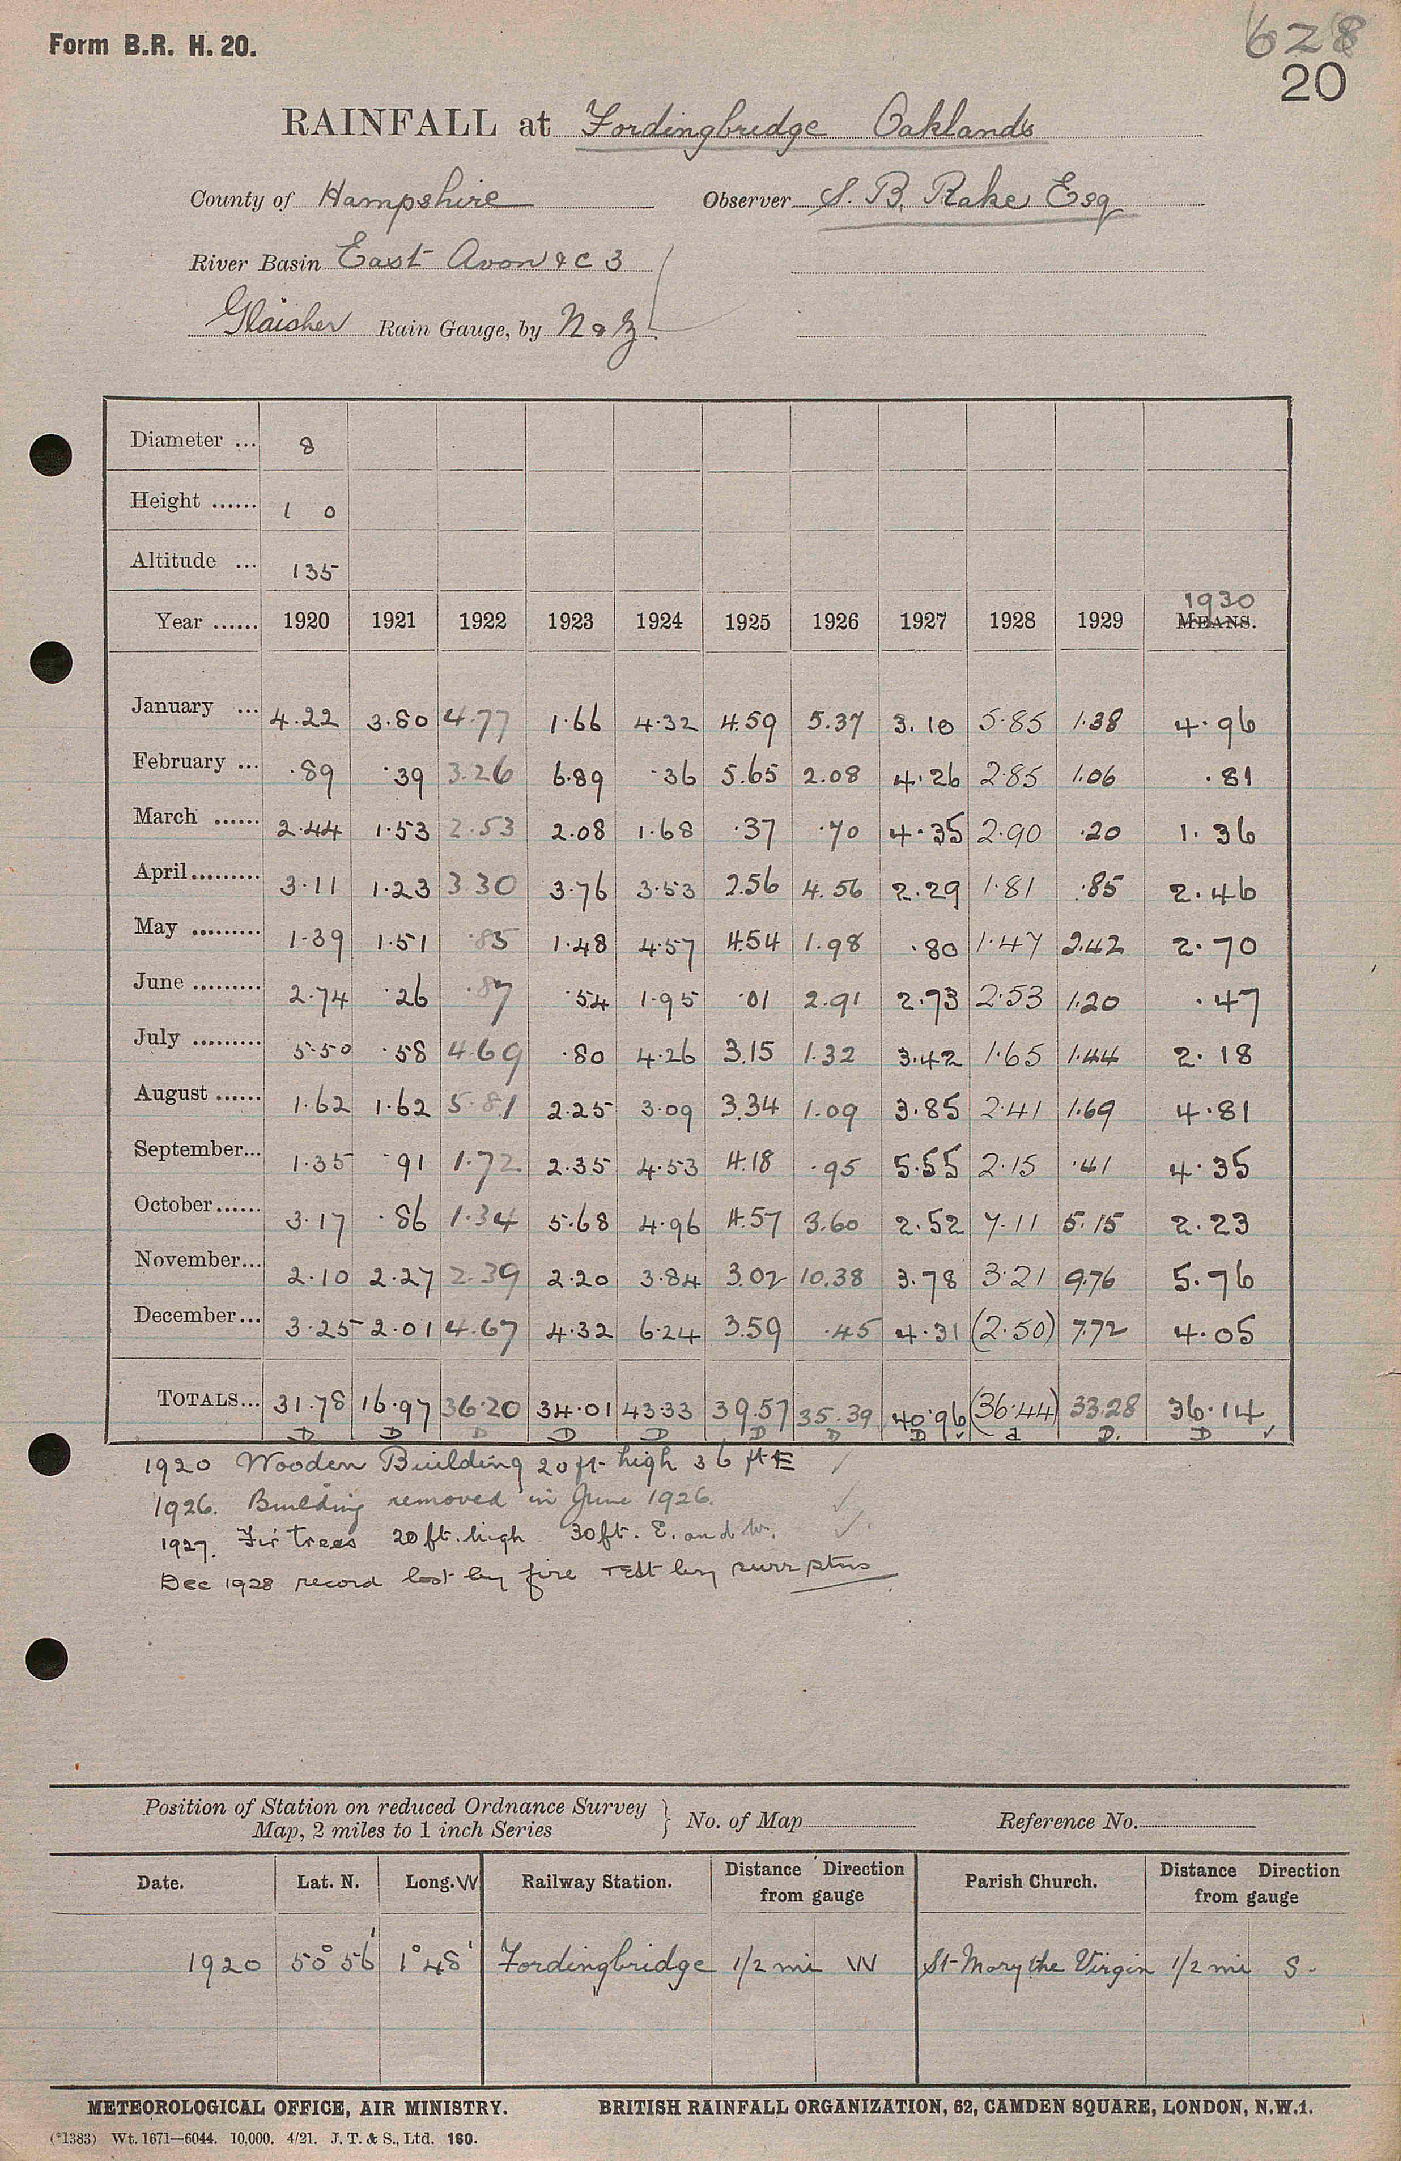 Form B.R. H. 20.
628
20
RAINFALL at Fordingbridge Oaklands
County of Hampshire Observer S. B. Rake Esq
River Basin East Avon &c 3
Glaisher Rain Gauge, by N & Z
Diameter ... 8
Height ...... 1 0
Altitude ... 135
1930
Year ...... 1920 1921 1922 1923 1924 1925 1926 1927 1928 1929 MEANS.
January ... 4.22 3.80 4.77 1.66 4.32 4.59 5.37 3.10 5.85 1.38 4.96
February ... .89 .39 3.26 6.89 .36 5.65 2.08 4.26 2.85 1.06 .81
March ...... 2.44 1.53 2.53 2.08 1.68 .37 .70 4.35 2.90 .20 1.36
April......... 3.11 1.23 3.30 3.76 3.53 2.56 4.56 2.29 1.81 .85 2.46
May ......... 1.39 1.51 .85 1.48 4.57 4.54 1.98 .80 1.47 2.42 2.70
June ......... 2.74 .26 .87 .54 1.95 .01 2.91 2.73 2.53 1.20 .47
July ......... 5.50 .58 4.69 .80 4.26 3.15 1.32 3.42 1.65 1.44 2.18
August ...... 1.62 1.62 5.81 2.25 3.09 3.34 1.09 3.85 2.41 1.69 4.81
September... 1.35 .91 1.72 2.35 4.53 4.18 .95 5.55 2.15 .41 4.35
October...... 3.17 .86 1.34 5.68 4.96 4.57 3.60 2.52 7.11 5.15 2.23
November... 2.10 2.27 2.39 2.20 3.84 3.02 10.38 3.78 3.21 9.76 5.76
December... 3.25 2.01 4.67 4.32 6.24 3.59 .45 4.31 (2.50) 7.72 4.05
TOTALS... 31.78 16.97 36.20 34.01 43.33 39.57 35.39 40.96 (36.44) 33.28 36.14
D D D D D D D D d D. D
1920 Wooden Building 20 ft high 36 ft E
1926. Building removed in June 1926.
1927. Fir trees 20 ft. high 30 ft. E. and W.
Dec 1928 record lost by fire Test by surr ptns
Position of Station on reduced Ordnance Survey
Map, 2 miles to 1 inch Series } No. of Map Reference No.
Date. Lat. N. Long. W Railway Station. Distance Direction from gauge Parish Church. Distance Direction from gauge
1920 50° 56' 1° 48' Fordingbridge 1/2 mi W St Mary the Virgin 1/2 mi S.
METEOROLOGICAL OFFICE, AIR MINISTRY. BRITISH RAINFALL ORGANIZATION, 62, CAMDEN SQUARE, LONDON, N.W.1.
(*1383) Wt. 1671—6044. 10,000. 4/21. J. T. & S., Ltd. 160.